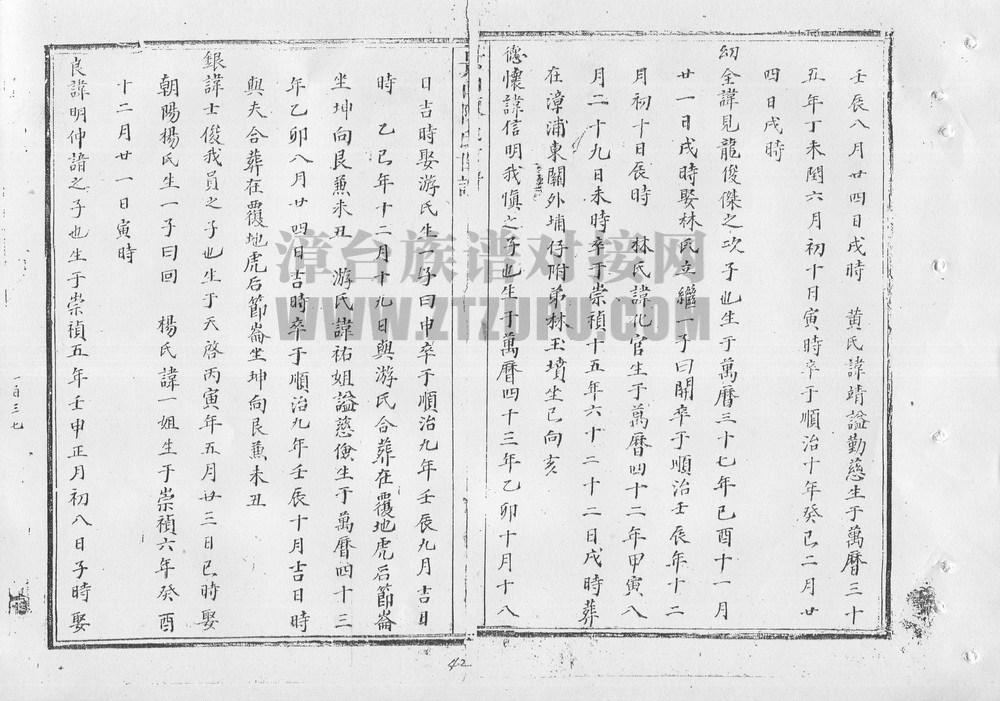 壬辰八月廿四日戌時　黃氏諱靖謚勤慈生于萬曆三十
五年丁未閏六月初十日寅時卒于順治十年癸巳二月廿
四日戌時
紉全諱見龍俊傑之次子也生于萬曆三十七年己酉十一月
廿一日戌時娶林氏立繼一子曰開卒于順治壬辰年十二
月初十日辰時　林氏諱化官生于萬曆四十二年甲寅八
月二十九日未時卒于崇禎十五年六十二十二日戌時葬
在漳浦東關外埔仔附弟林玉墳坐巳向亥
德懷諱信明我慎之子也生于萬曆四十三年乙卯十月十八
日吉時娶游氏生一子曰申卒于順治九年壬辰九月吉日
時　乙巳年十二月十九日與游氏合葬在覆地虎后節崙
坐坤向艮兼未丑　游氏諱祐姐謚慈儉生于萬曆四十三
年乙卯八月廿四日吉時卒于順治九年壬辰十月吉日時
與夫合葬在覆地虎后節崙坐坤向艮兼未丑
銀諱士俊我員之子也生于天啓丙寅年五月廿三日巳時娶
朝陽楊氏生一子曰回　楊氏諱一姐生于崇禎六年癸酉
十二月廿一日寅時
良諱明仲諳之子也生于崇禎五年壬申正月初八日子時娶
一百三七
42
漳台族谱对接网
WWW.ZTZUPU.COM